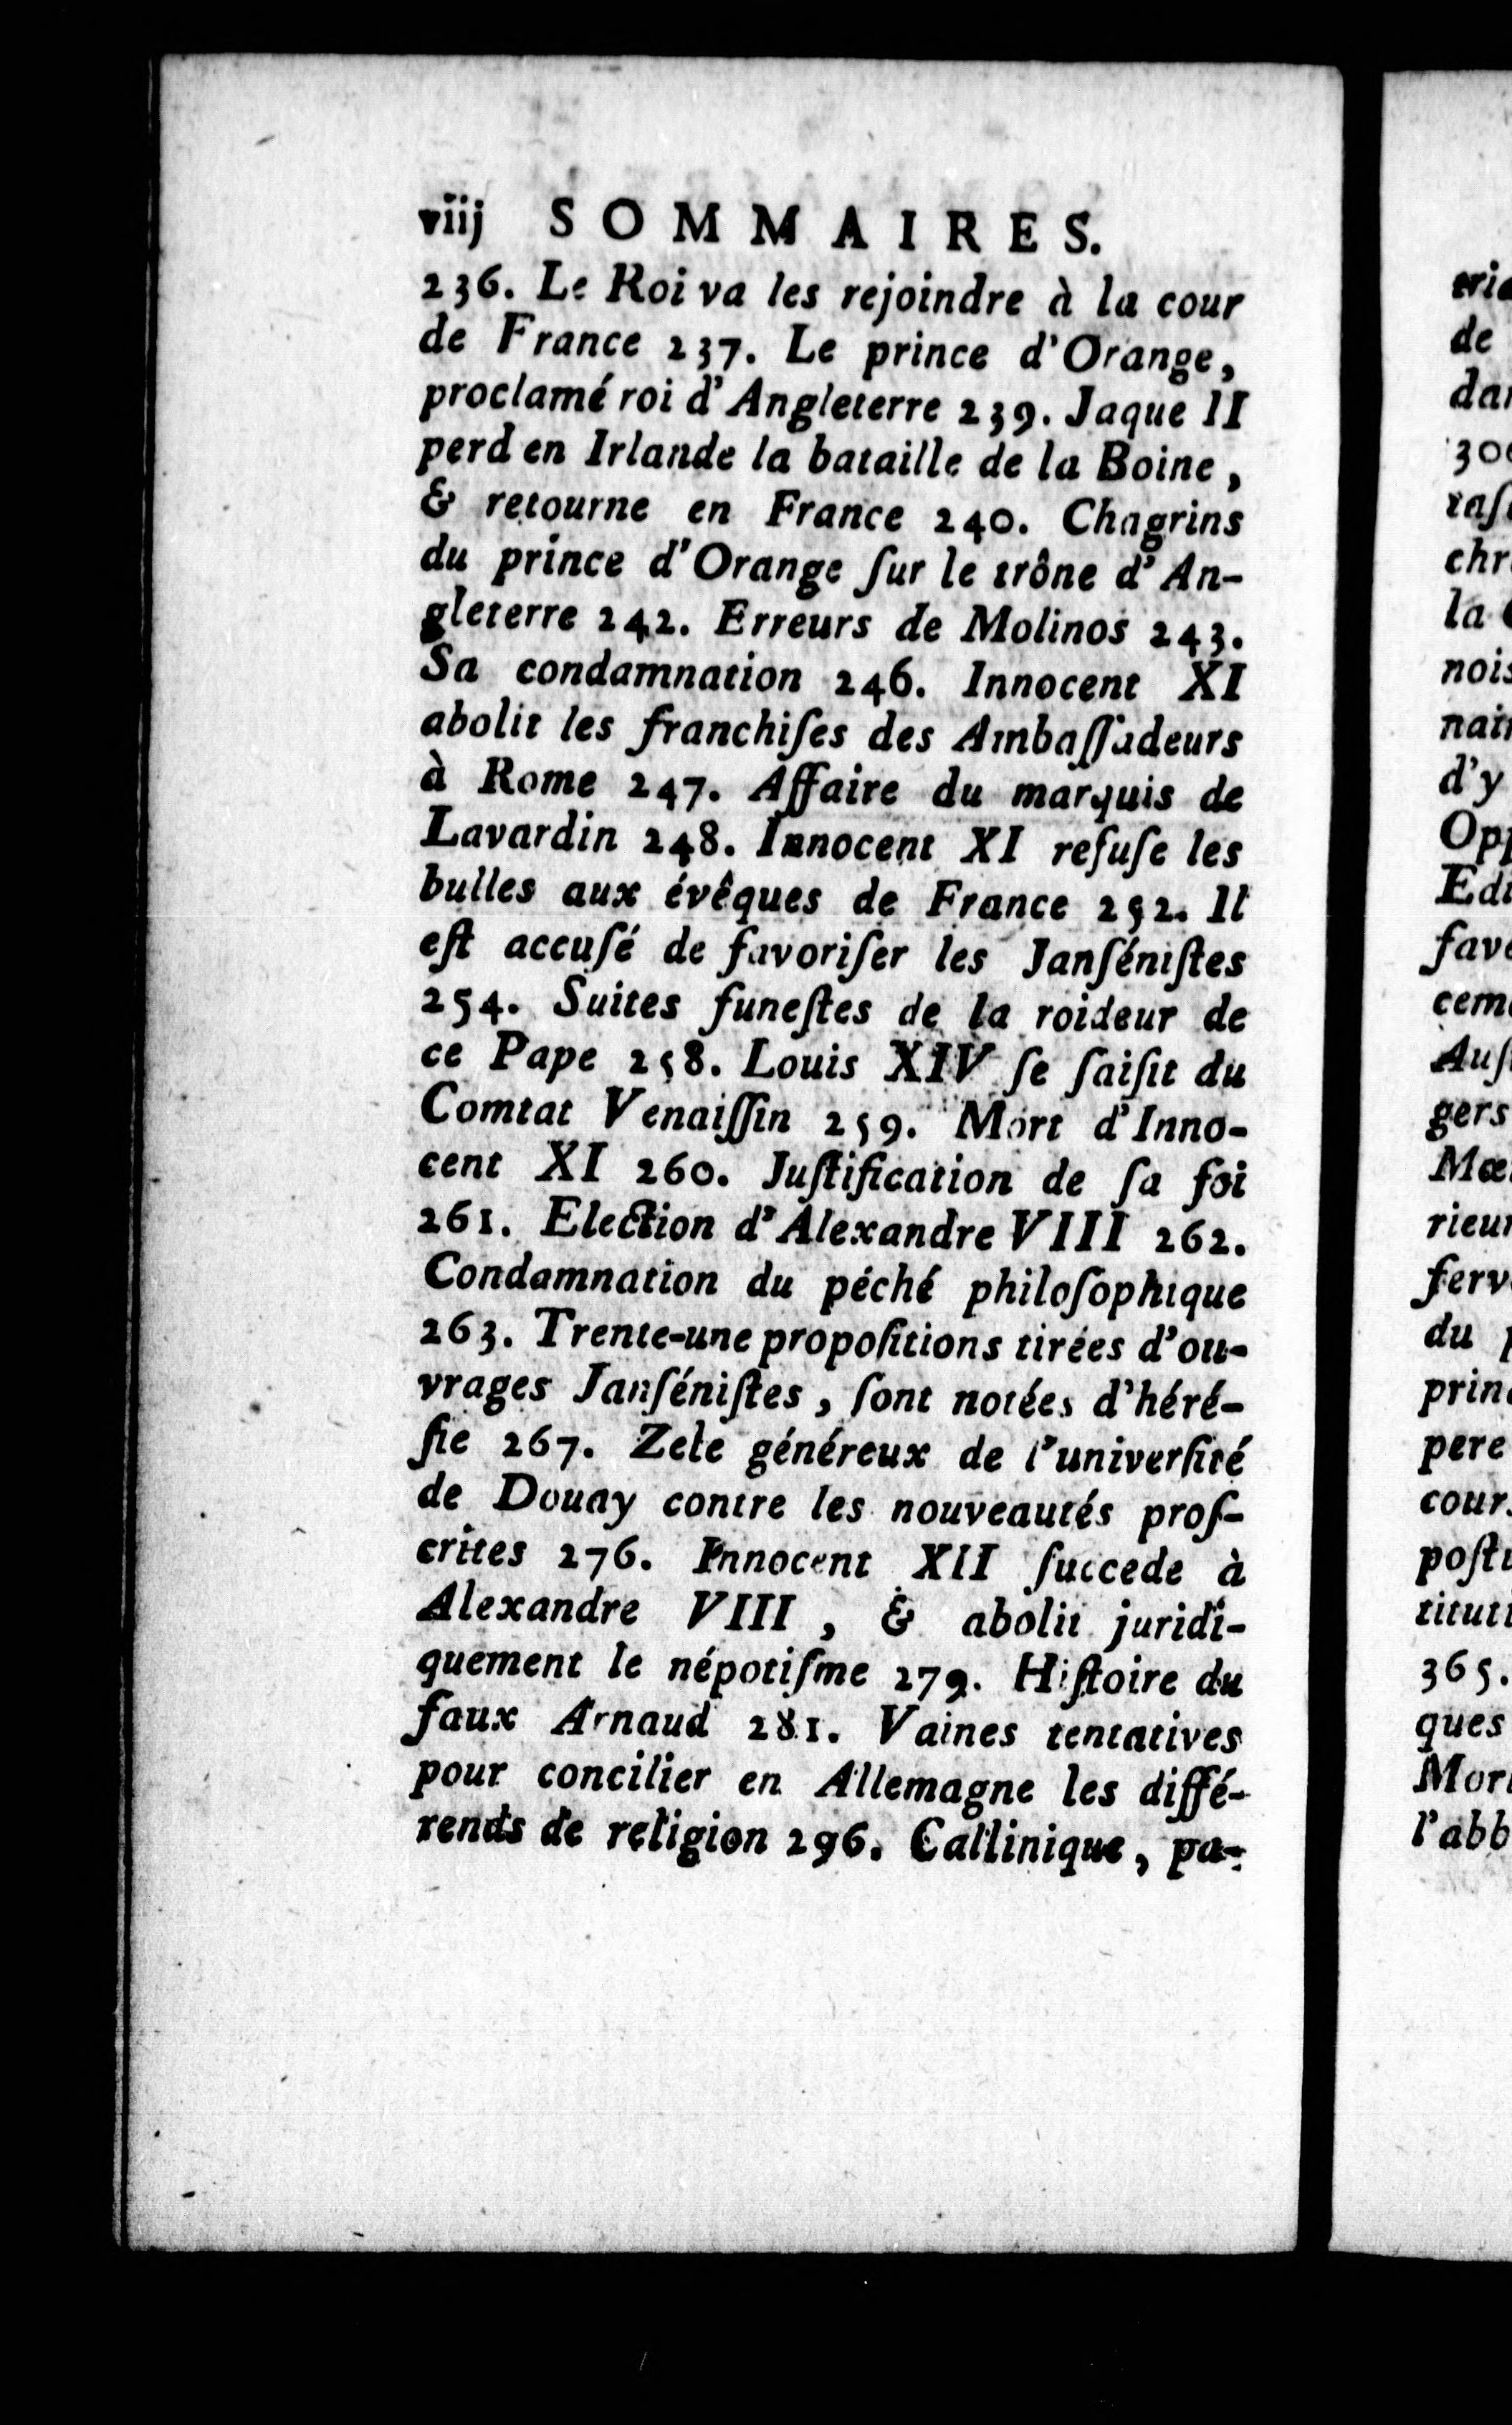 viij SOMMAIRES.
236. Le Roi va les rejoindre à la cour
de France 237. Le prince d'Orange,
proclamé roi d'Angleterre 239. Jaque II
perd en Irlande la bataille de la Boine,
& retourne en France 240. Chagrins
du prince d'Orange ſur le trône d'An-
gleterre 242. Erreurs de Molinos 243.
Sa condamnation 246. Innocent XI
abolit les franchiſes des Ambaſſadeurs
à Rome 247. Affaire du marquis de
Lavardin 248. Innocent XI refuſe les
bulles aux évêques de France 252. Il
eſt accuſé de favoriſer les Janſéniſtes
254. Suites funeſtes de la roideur de
ce Pape 258. Louis XIV ſe ſaiſit du
Comtat Venaiſſin 259. Mort d'Inno-
cent XI 260. Juſtification de ſa foi
261. Election d'Alexandre VIII 262.
Condamnation du péché philoſophique
263. Trente-une propoſitions tirées d'ou-
vrages Janſéniſtes, ſont notées d'héré-
ſie 267. Zele généreux de l'univerſité
de Douay contre les nouveautés proſ-
crites 276. Innocent XII ſuccede à
Alexandre VIII, & abolit juridi-
quement le népotiſme 279. Hiſtoire du
faux Arnaud 281. Vaines tentatives
pour concilier en Allemagne les diffé-
rends de religion 296. Callinique, pa-
de
la
nois
d'y
gers
du
pere
365.
ques